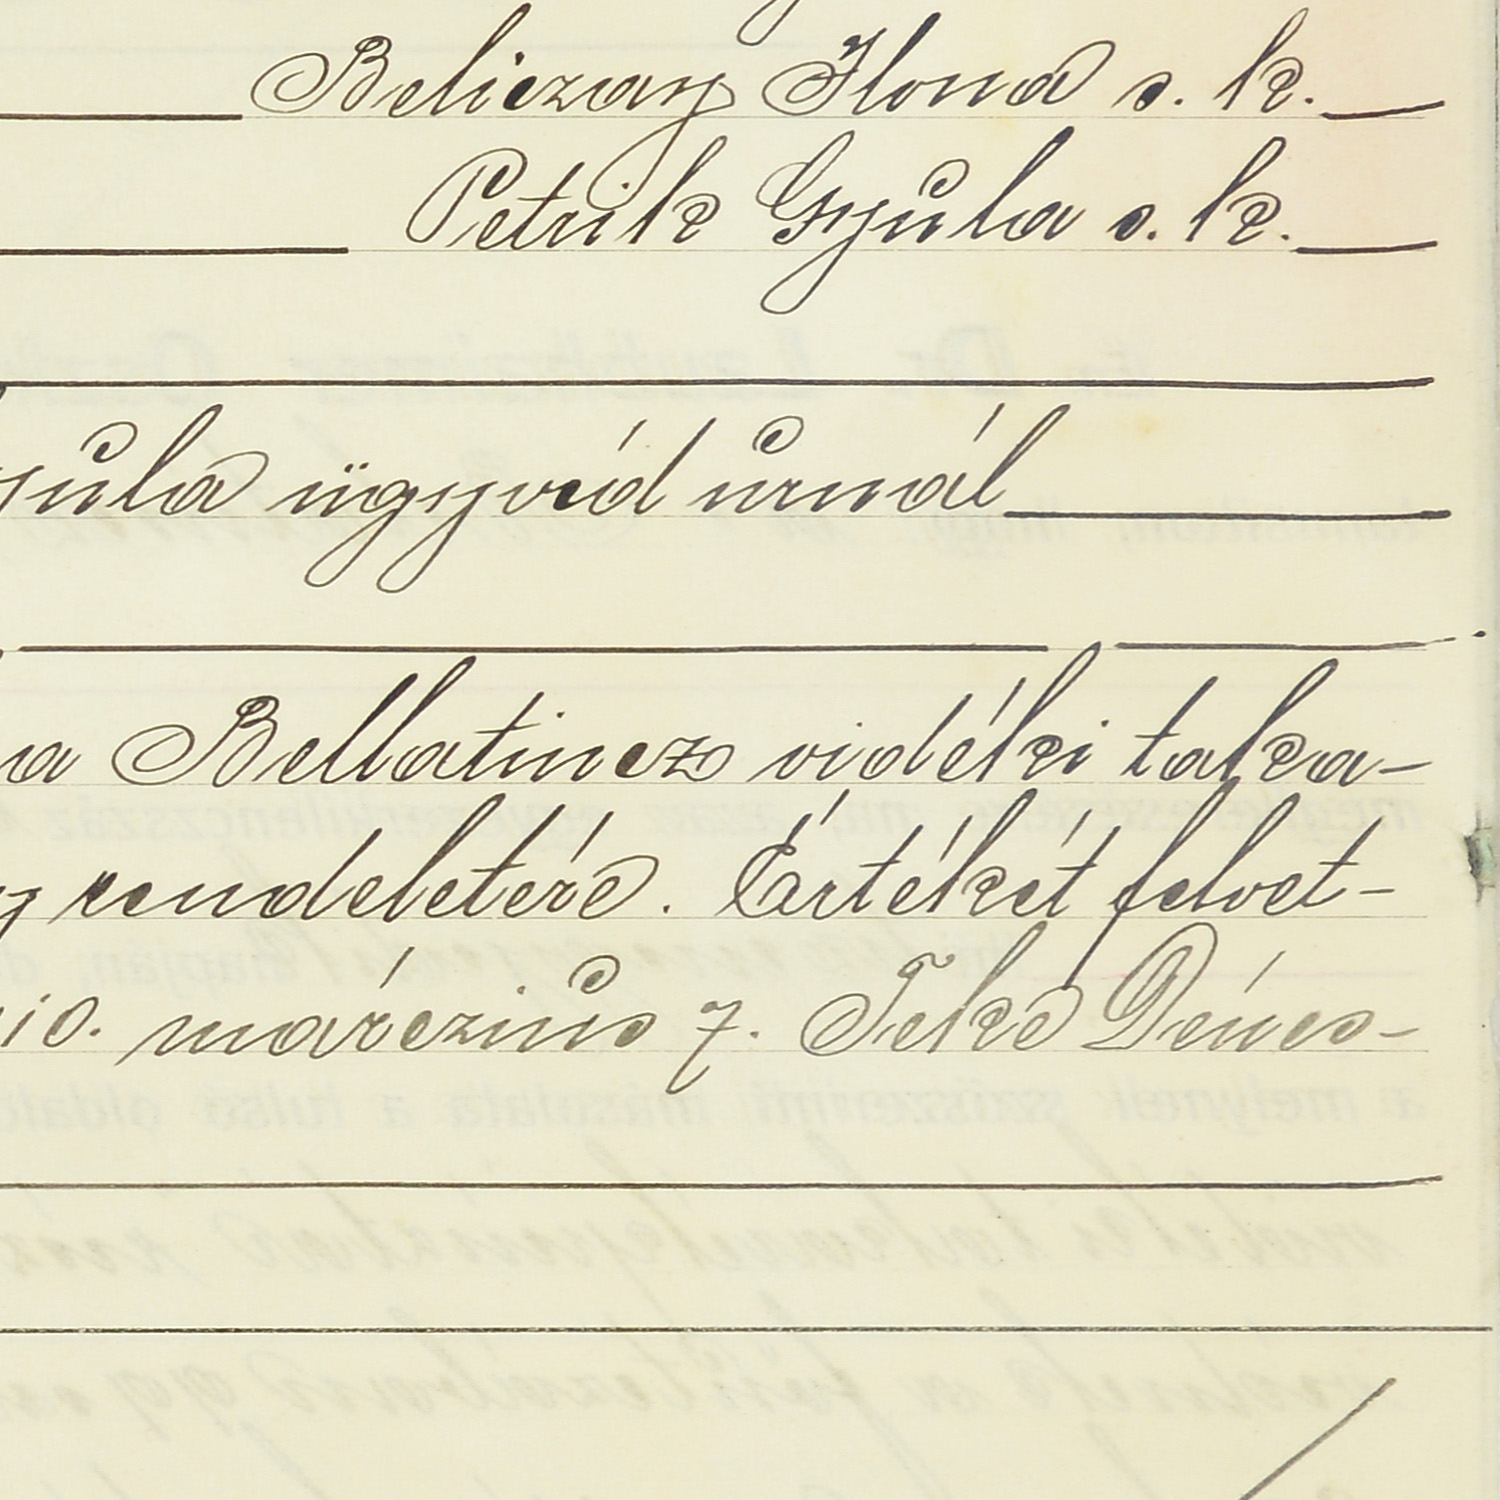 Beliczay Ilona s. k.
Petrik Gyula s. k.
yula ügyvéd úrnál
a Bellatincz vidéki taka-
rendeletére. Értékét felvet-
10. márczius 7. Teke Dénes-